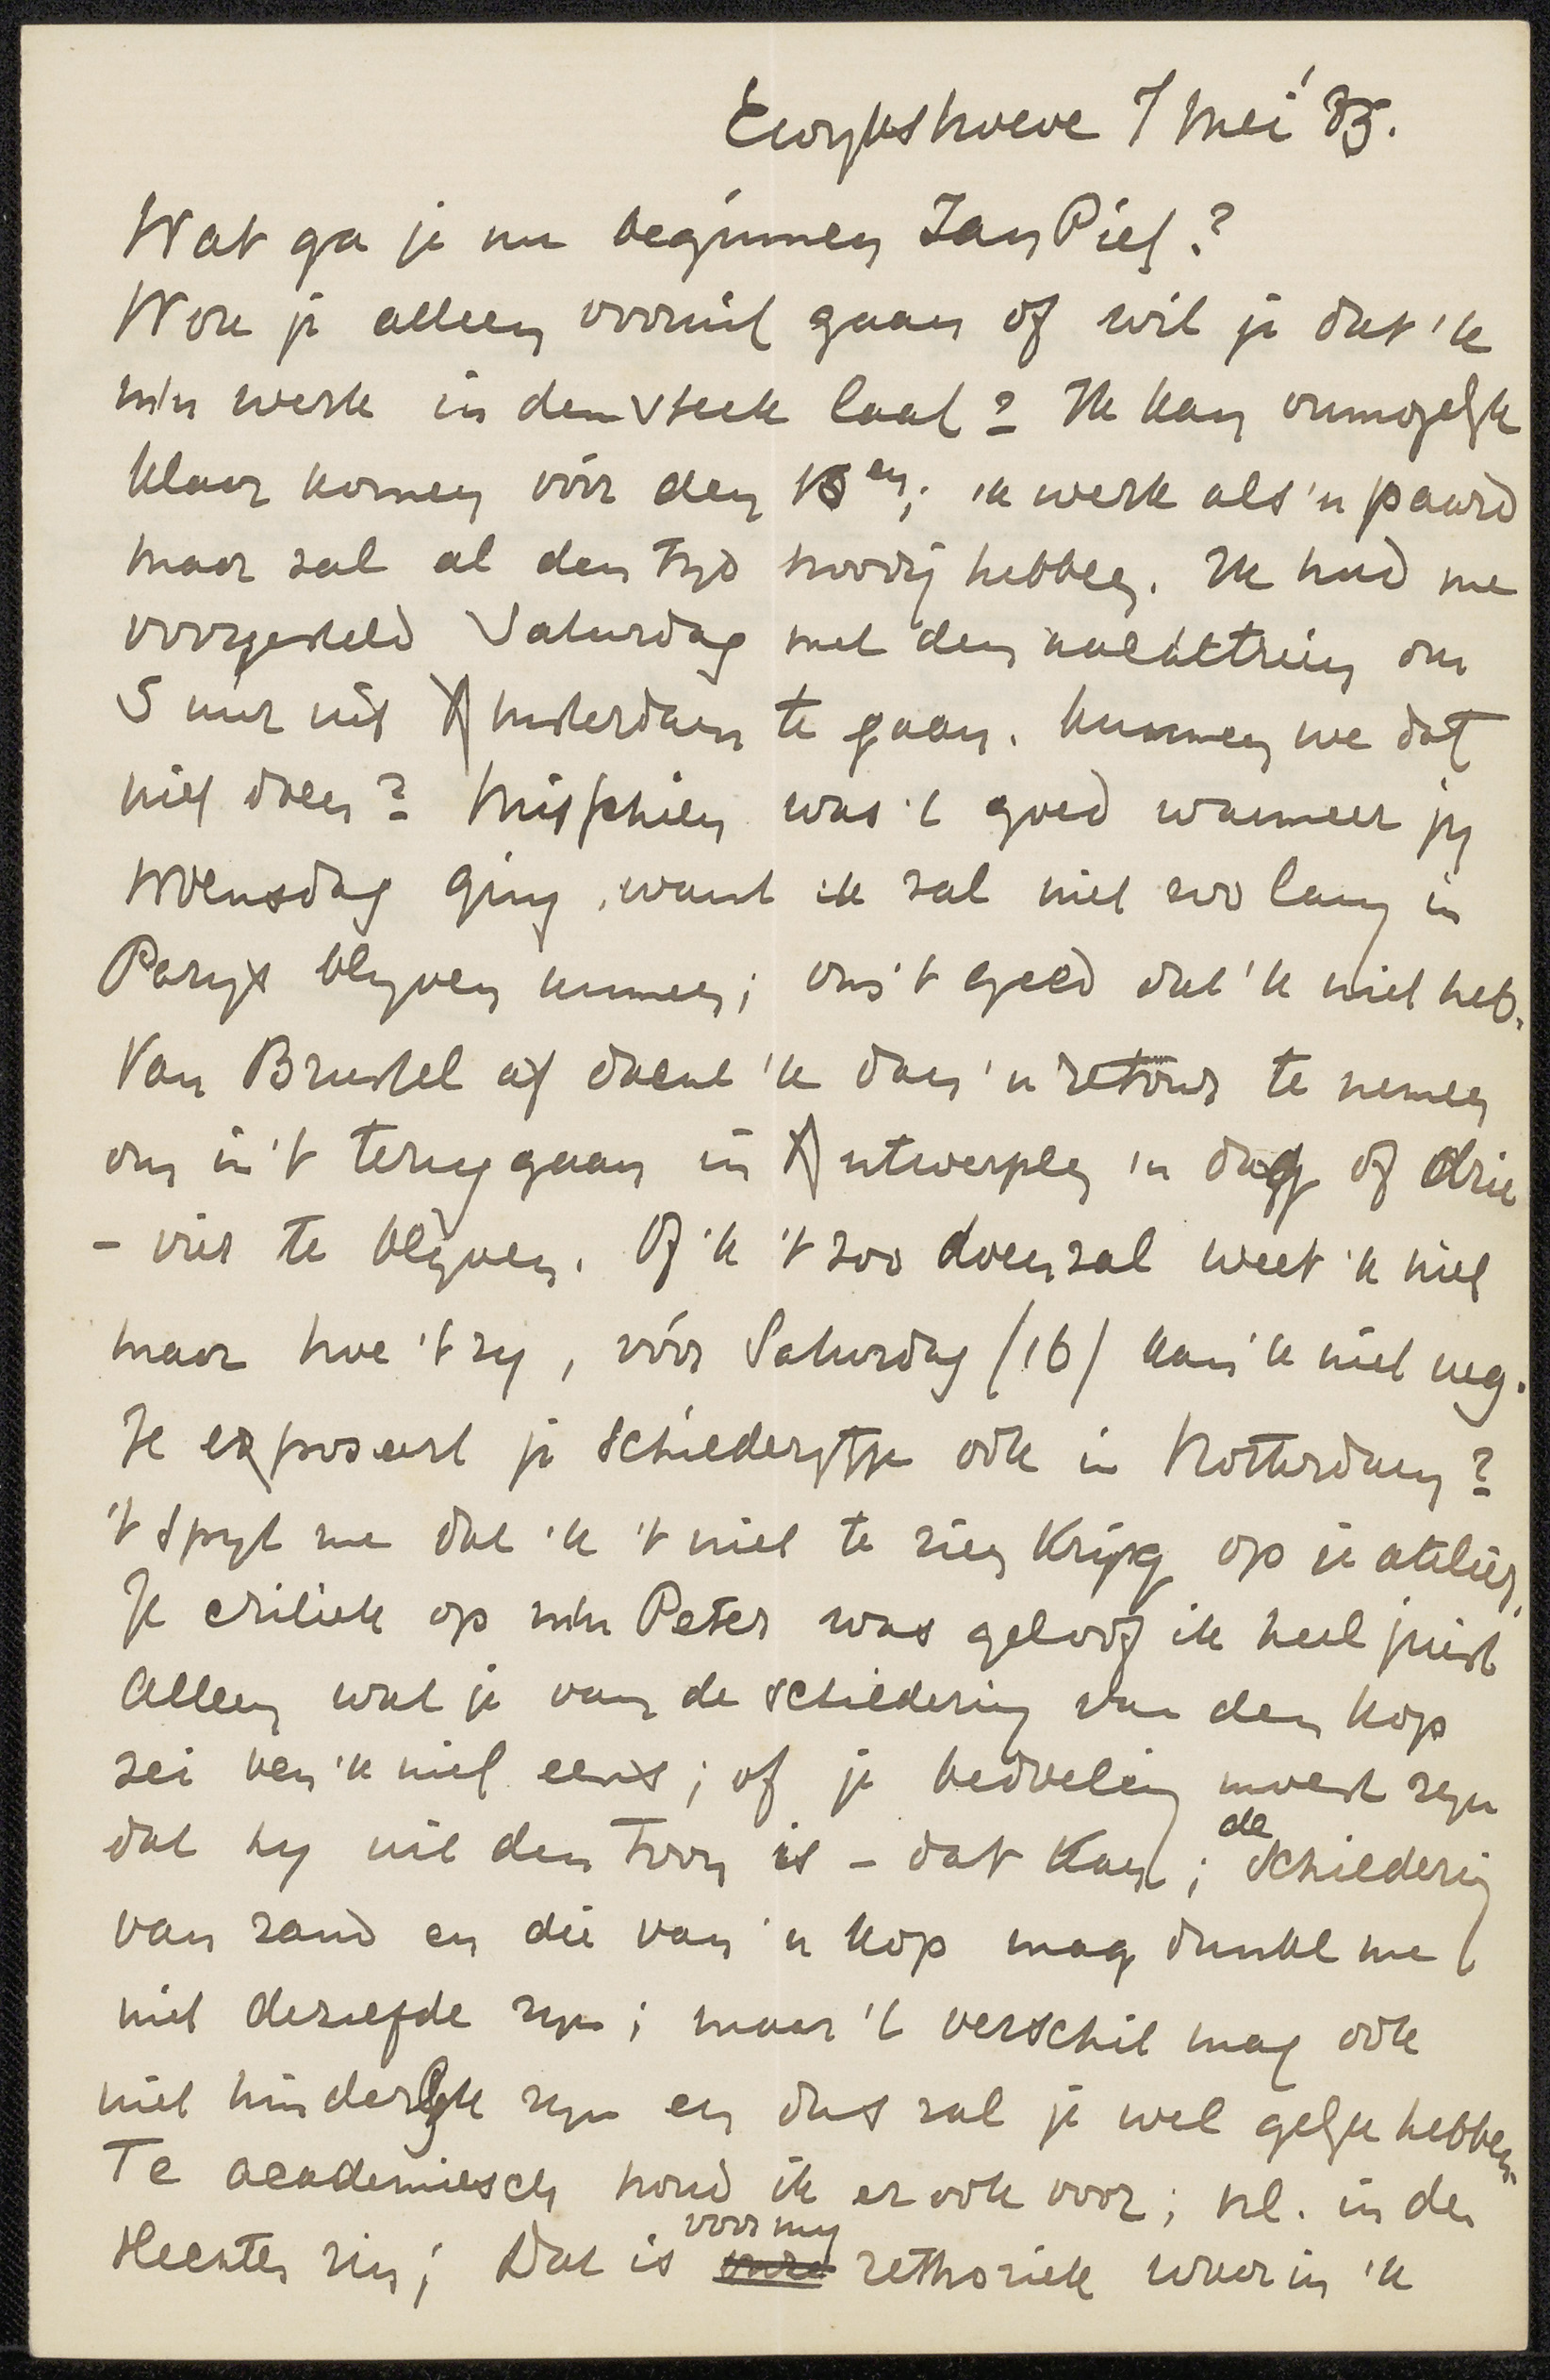 Ewijkshoeve 7 Mei '85.
Wat ga je nu beginnen Jan Piet?
Wou je alleen vooruit gaan of wil je dat 'k
m'n werk in den steek laat? Ik kan onmogelijk
klaar komen vóór den 15en; ik werk als 'n paard
maar zal al den tijd noodig hebben. Ik had me
voorgesteld Saturdag met den nachttrein om
5 uur uit Amsterdam te gaan. Kunnen we dat
niet doen? Misschien was 't goed wanneer jij
Woensdag ging, want ik zal niet zoo lang in
Parijs blijven kunnen; om 't geld dat 'k niet heb.
Van Brussel af dacht 'k dan 'n retour te nemen
om in 't teruggaan in Antwerpen 'n dag of drie
- vier te blijven. Of 'k 't zoo doen zal weet 'k niet
maar hoe 't zij, vóór Saturdag (16) kan 'k niet weg.
Je exposeert je schilderijtje ook in Rotterdam?
't Spijt me dat 'k 't niet te zien krijg op je atelier.
Je critiek op m'n Peter was geloof ik heel juist
Alleen wat je van de schildering van den kop
zei ben 'k niet eens; of je bedoeling moest zijn
dat hij uit den toon is - dat kan; de schildering
van zand en die van 'n kop mag dunkt me
niet dezelfde zijn; maar 't verschil mag ook
niet hinderlijk zijn en dus zal je wel gelijk hebben
Te academiesch houd ik er ook voor; nl. in den
slechten zin; Dat is voor mij rethoriek waarin 'k